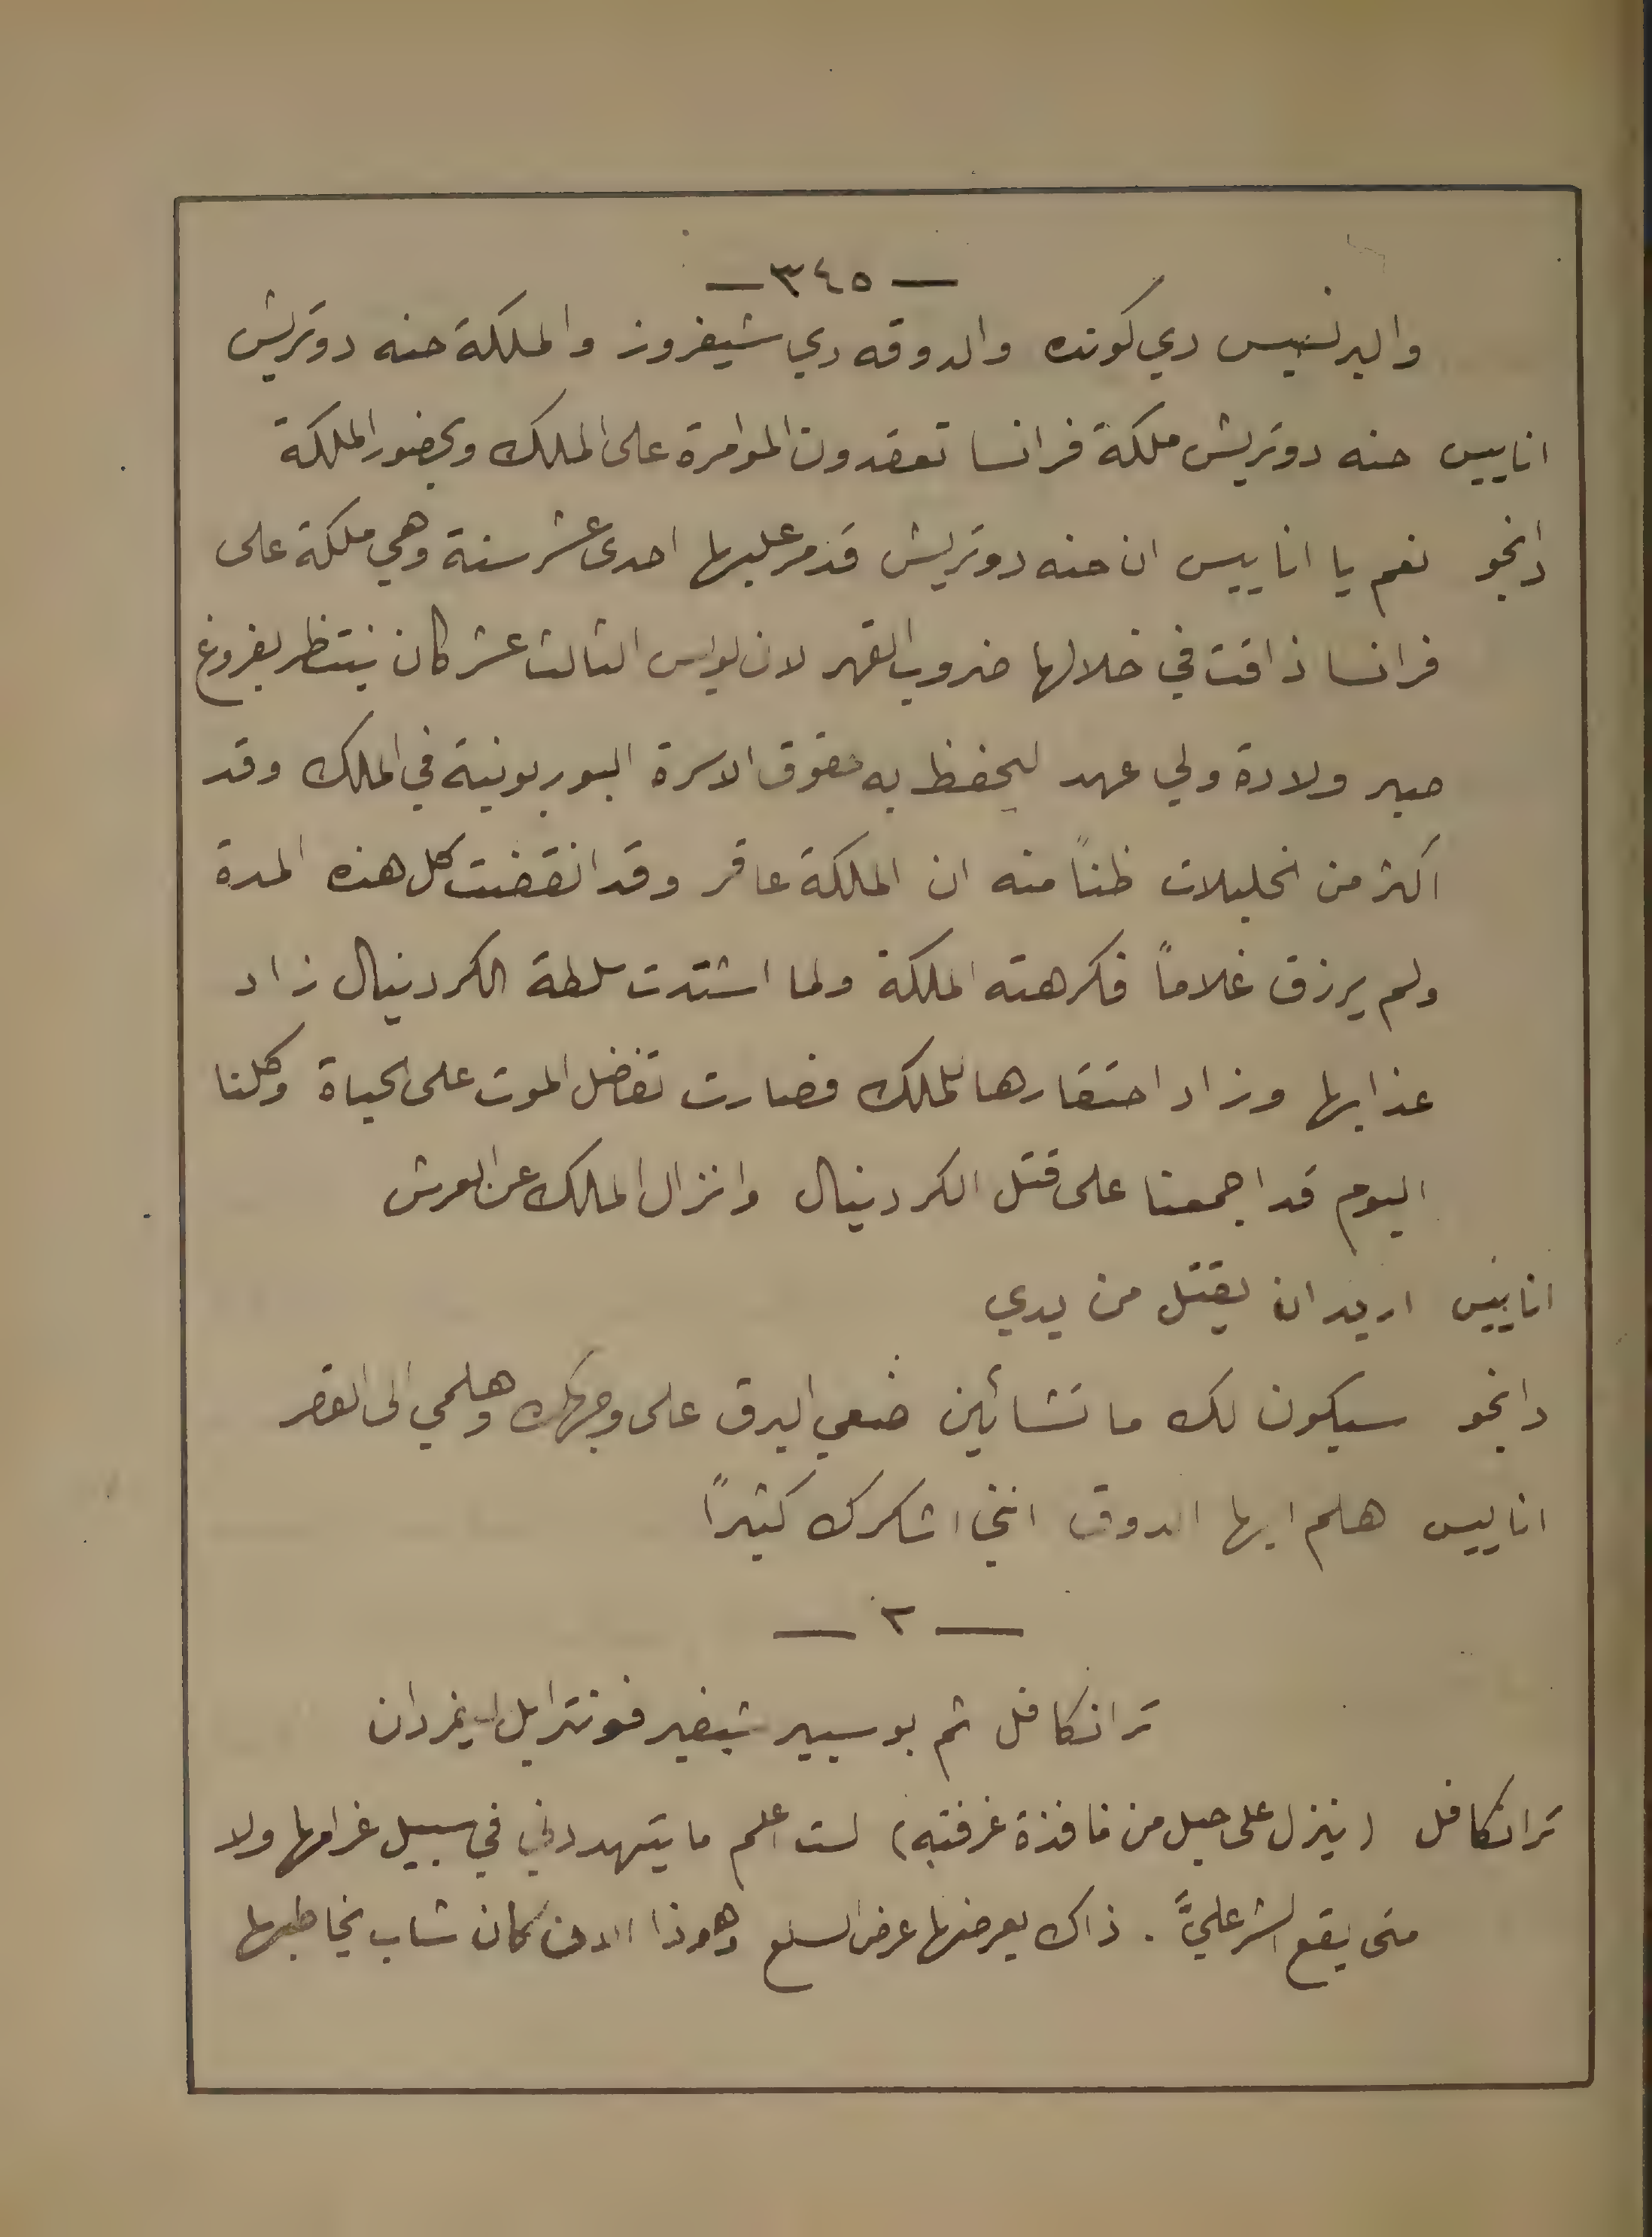 — ٣٤٥ —
والبرنسيس دي كونده والدوقه دي شيفروز والملكة حنه دوتريش
اناييس حنه دوتريش ملكة فرانسا تعقدون الموامرة على الملك وبحضور الملكة
دانجو نعم يا اناييس ان حنه دوتريش قد مر عليها احدى عشر سنة وهي ملكة على
فرانسا ذاقت في خلالها ضروب القهر لان لويس الثالث عشر كان ينتظر بفروغ
صبر ولادة ولي عهد ليحفظ به حقوق الاسرة البوربونية في الملك وقد
اكثر من الخليلات ظناً منه ان الملكة عاقر وقد انقضت كل هذه المدة
ولم يرزق غلاماً فكرهته الملكة ولما اشتدت سلطة الكردينال زاد
عذابها وزاد احتقارها للملك فصارت تفضل الموت على الحياة وكلنا
اليوم قد اجمعنا على قتل الكردينال وانزال الملك عن العرش
اناييس اريد ان يقتل من يدي
دانجو سيكون لك ما تشائين ضعي البرق على وجهك وهلمي الى القصر
اناييس هلم ايها الدوق انني اشكرك كثيراً
— ٢ —
ترانكافل ثم بوسيير شيفير فونترايل ليفردان
ترانكافل (ينزل على حبل من نافذة غرفته) لست اعلم ما يتهددني في سبيل غرامها ولا
متى يقع الشر عليَّ . ذاك يعرضها عرض السلع وهوذا الان كان شاب يخاطبها